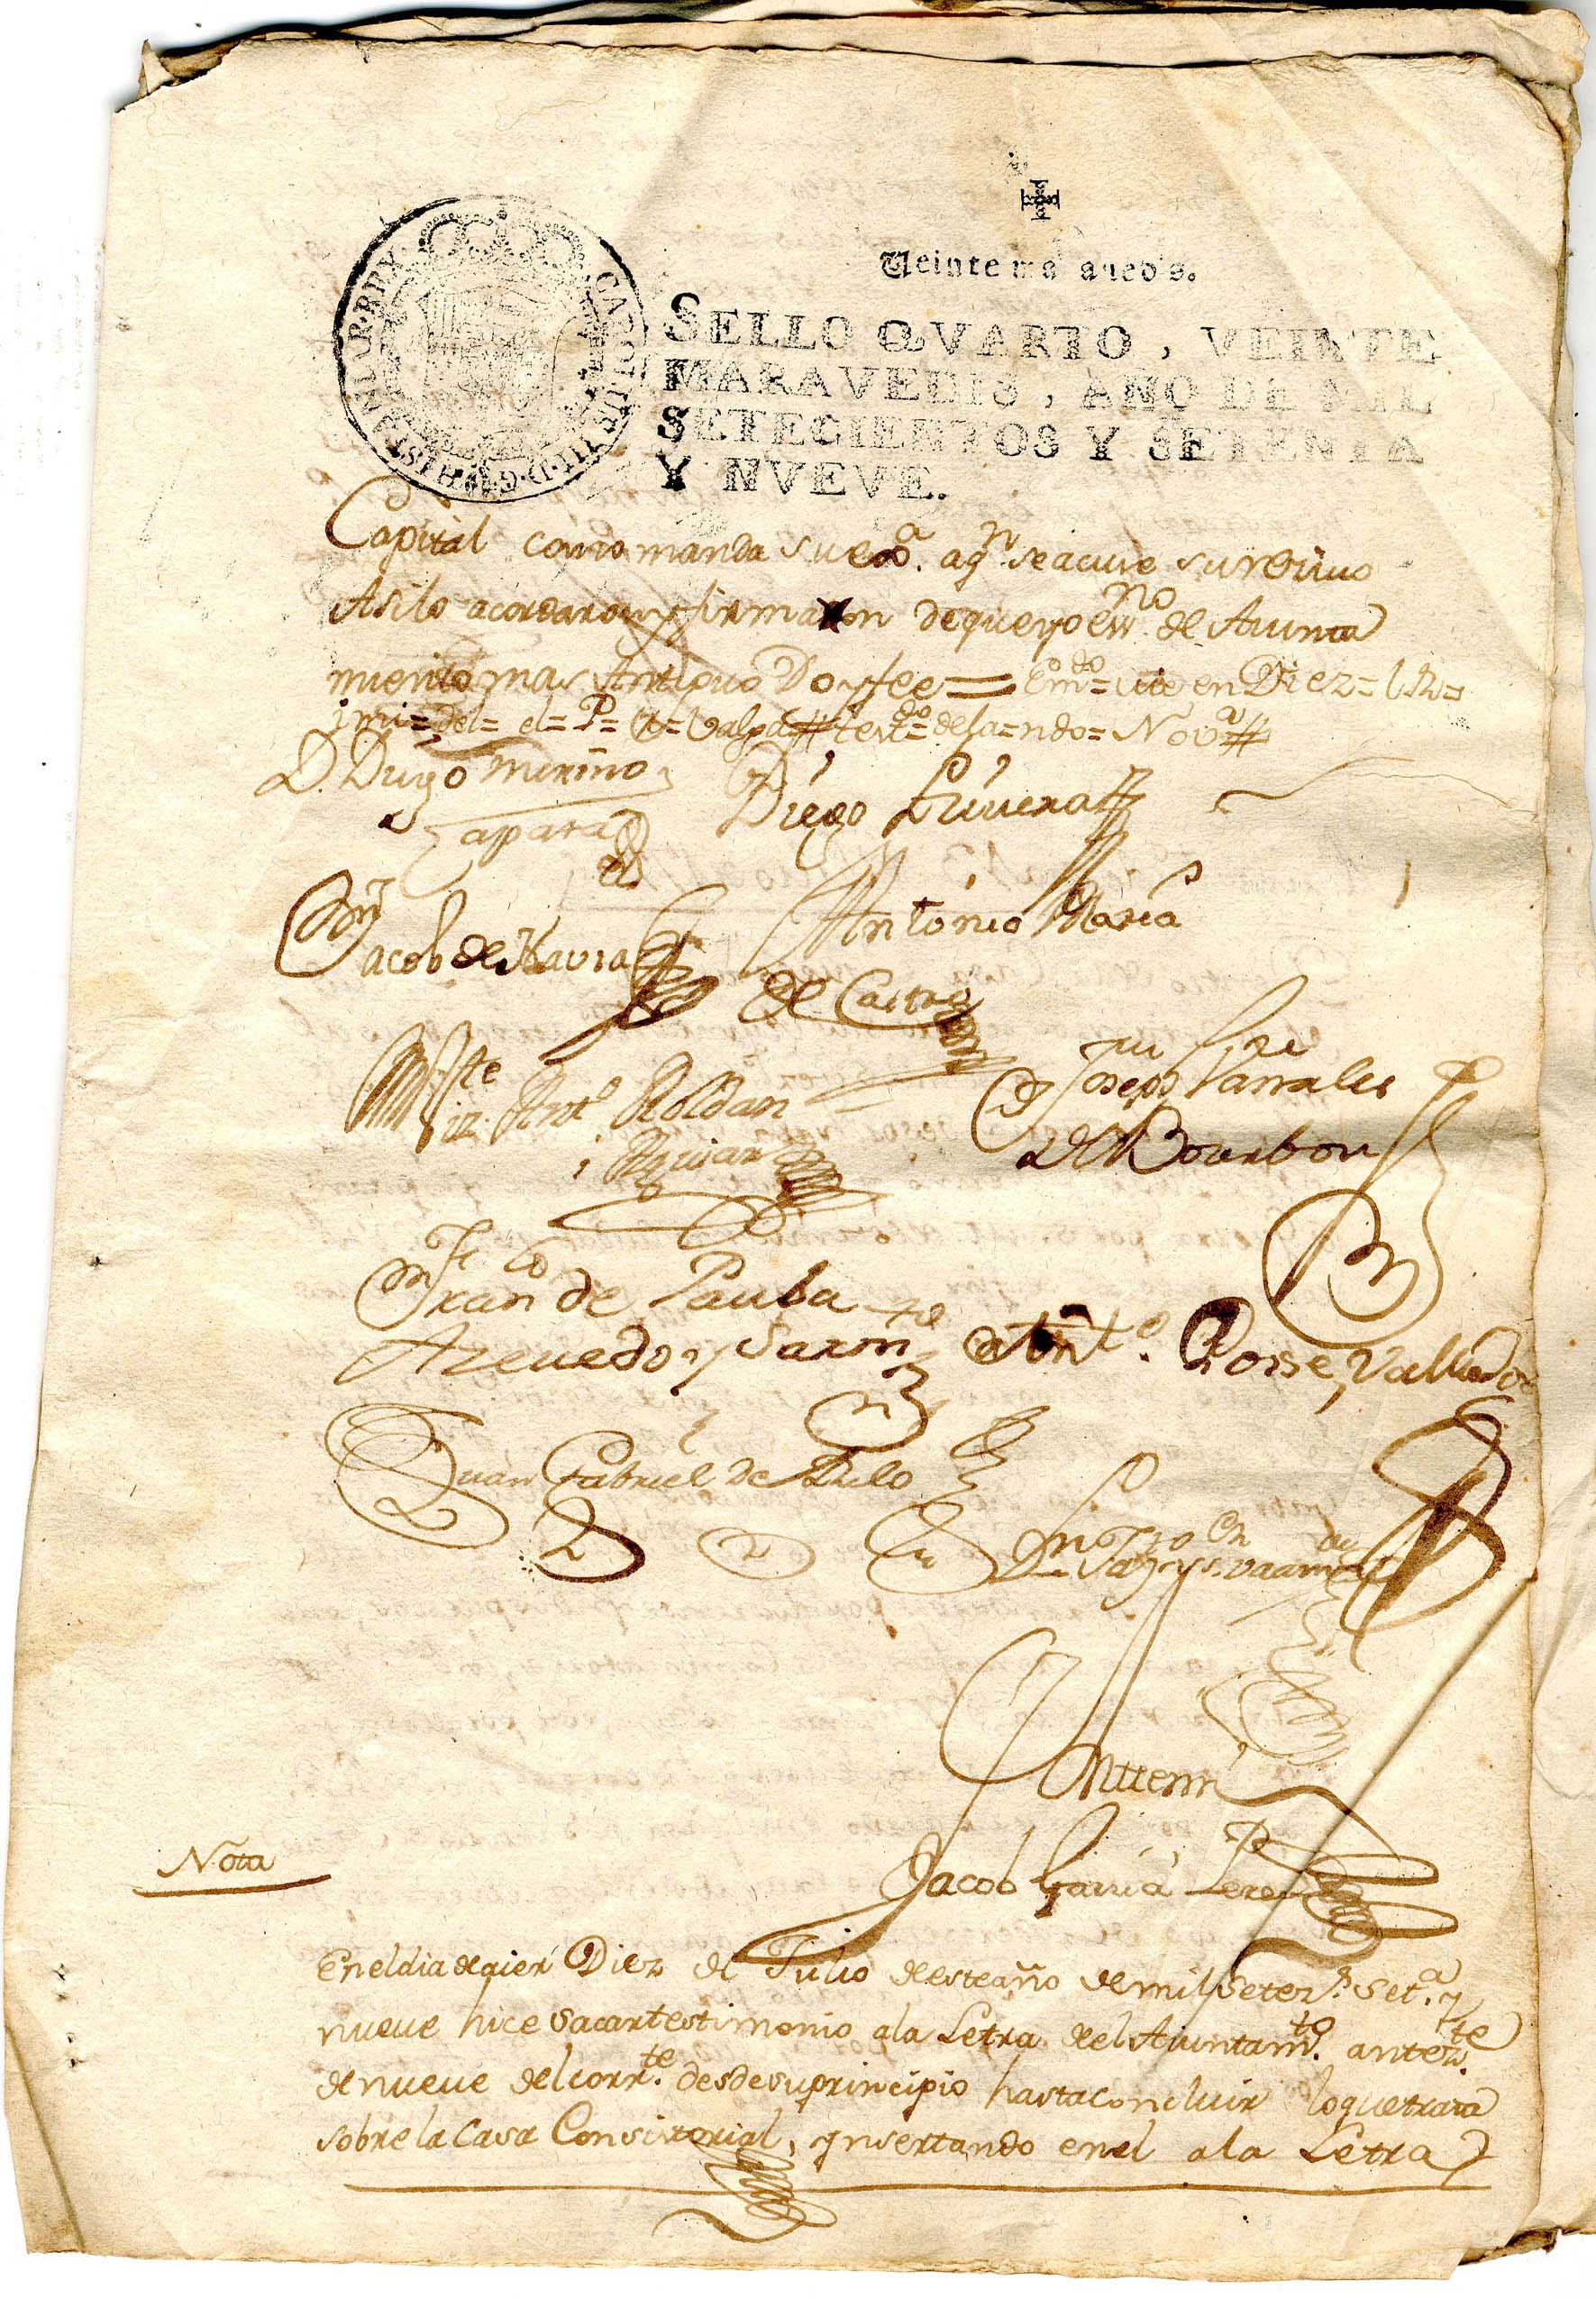 Veinte maravedis.
CAROLUS III D G HISPANIAR REX
SELLO QVARTO, VEINTE
MARAVEDIS, AÑO DE MIL
SETECIENTOS Y SETENTA
Y NVEVE.
Capital como manda su exa. a qn. se acuse su recivo
Asi lo acordaron y firmaron de que yo essno. de Aiunta
miento mas Antiguo Doy fee = Emdo = en Diez =
del = el = P = Valga # testdo = de la = ndo = Nova #
D. Diego mariño
Diego Rivera
Jacob de Navia
Antonio Maria
de Castro
Ante. Roldan
i Aguiar
Joseph Canales
de Bourbon
Franco de Paula
Azevedo y Sarmto
Anto. Posse, Valledor
Juan Gabriel de
Saz y Vaamde
Antemi
Jacob Garcia Perez
Nota
En el dia de aier Diez de Julio de este año de mil setezs. seta. y
nueve hice sacar testimonio a la Letra del Aiuntamto. antezte.
de nueve del corrte. desde su principio hasta concluir lo que trata
sobre la Casa Consistorial, ynsertando en el a la Letra